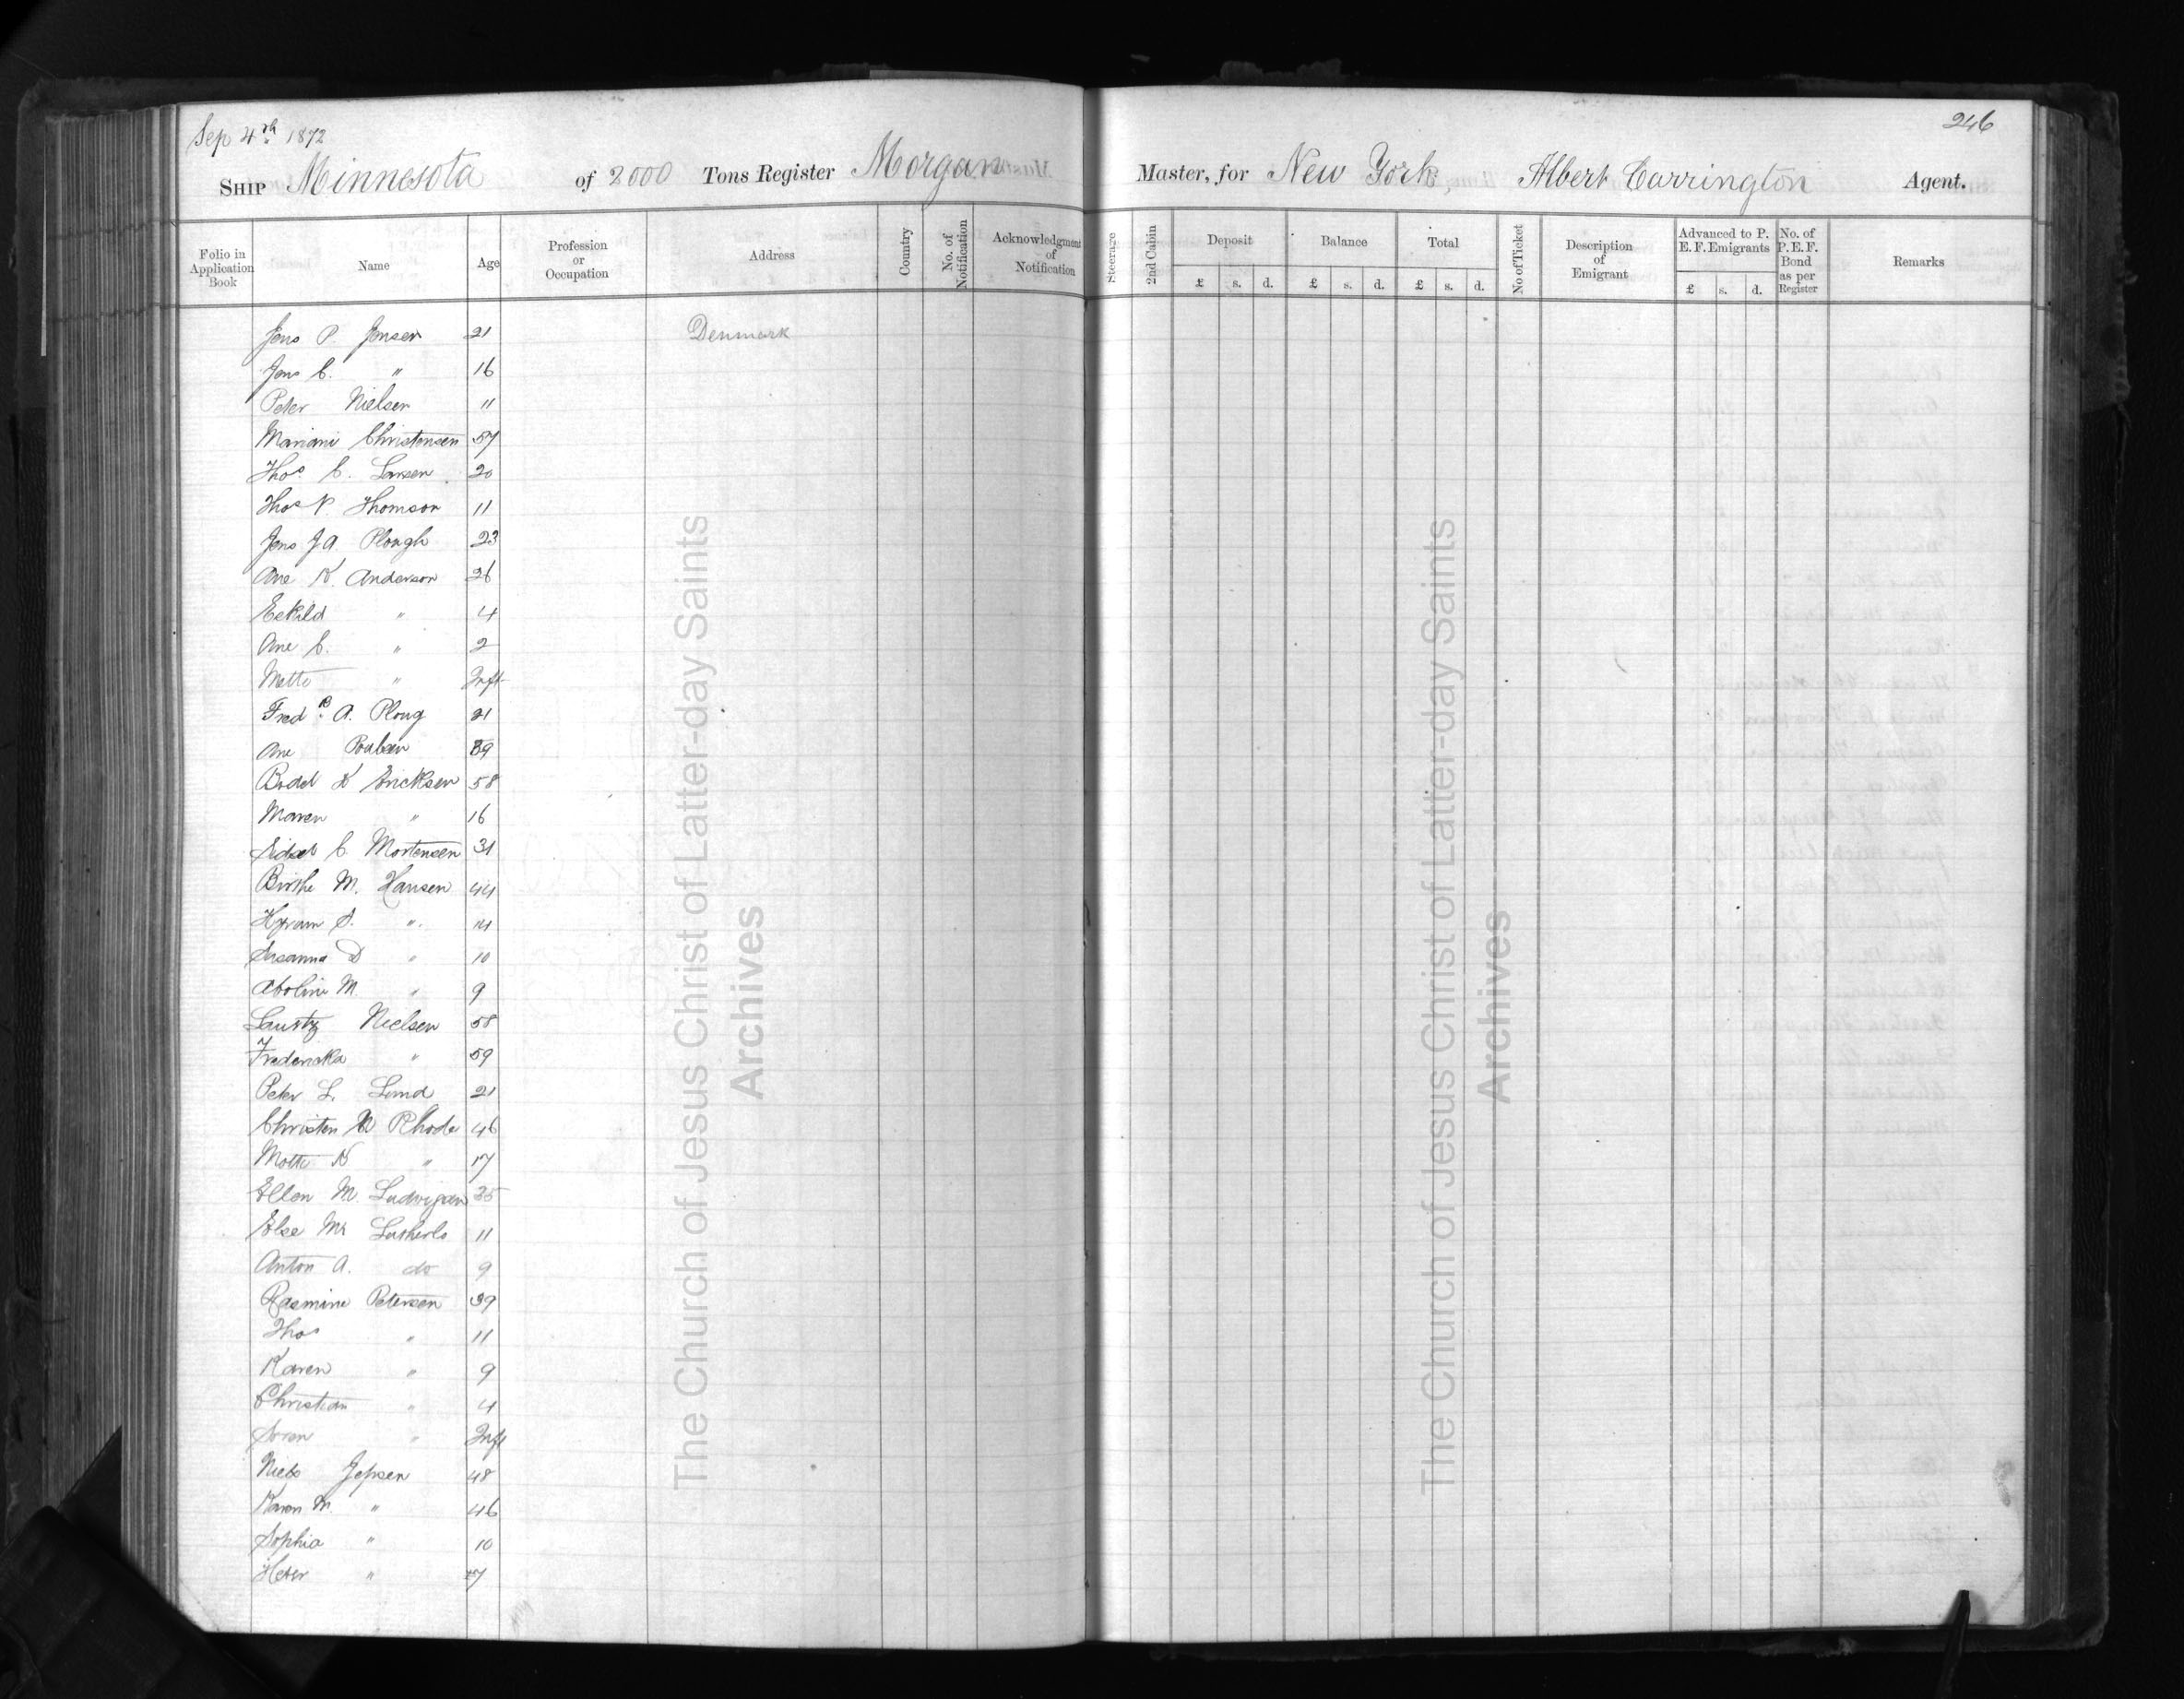 Sep 4th 1872
246
SHIP Minnesota of 2000 Tons Register Morgan Master, for New York, Albert Carrington Agent.
Folio in Application Book Name Age Profession or Occupation Address Country No. of Notification Acknowledgment of Notification Steerage 2nd Cabin Deposit £ s. d. Balance £ s. d. Total £ s. d. No of Ticket Description of Emigrant Advanced to P. E. F. Emigrants £ s. d. No. of P.E.F. Bond as per Register Remarks
Jens P. Jensen 21 Denmark
Jens C. " 16
Peter Nielsen 11
Mariani Christensen 57
Thos. C. Larsen 20
Thos N. Thomson 11
Jens J A Plough 23
Ane K. Anderson 26
Eskild " 4
Ane C. " 2
Mette " Inft
Fredk. A. Ploug 21
Ane Poulsen 39
Bodel K Ericksen 58
Maren " 16
Sidsel C. Mortensen 31
Birthe M. Hansen 44
Hyram S. " 14
Susanna D " 10
Aboline M. " 9
Laustz Nielsen 58
Fredericka " 59
Peter L. Lund 21
Christen Rhode 46
Mette K " 17
Ellen M. Ludvigsen 35
Else Mr 11
Anton A. do 9
Rasmine Petersen 39
Thos " 11
Karen " 9
Christian " 4
Soren " Inft
Niels Jepsen 48
Karen M. " 46
Sophia " 10
Heber " 7
The Church of Jesus Christ of Latter-day Saints
Archives
The Church of Jesus Christ of Latter-day Saints
Archives